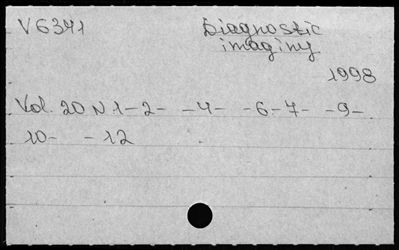 V6371 Diagnostic
imaginy
1998
Vol. 20 N 1-2- -4- -6-7- -9-
10- -12